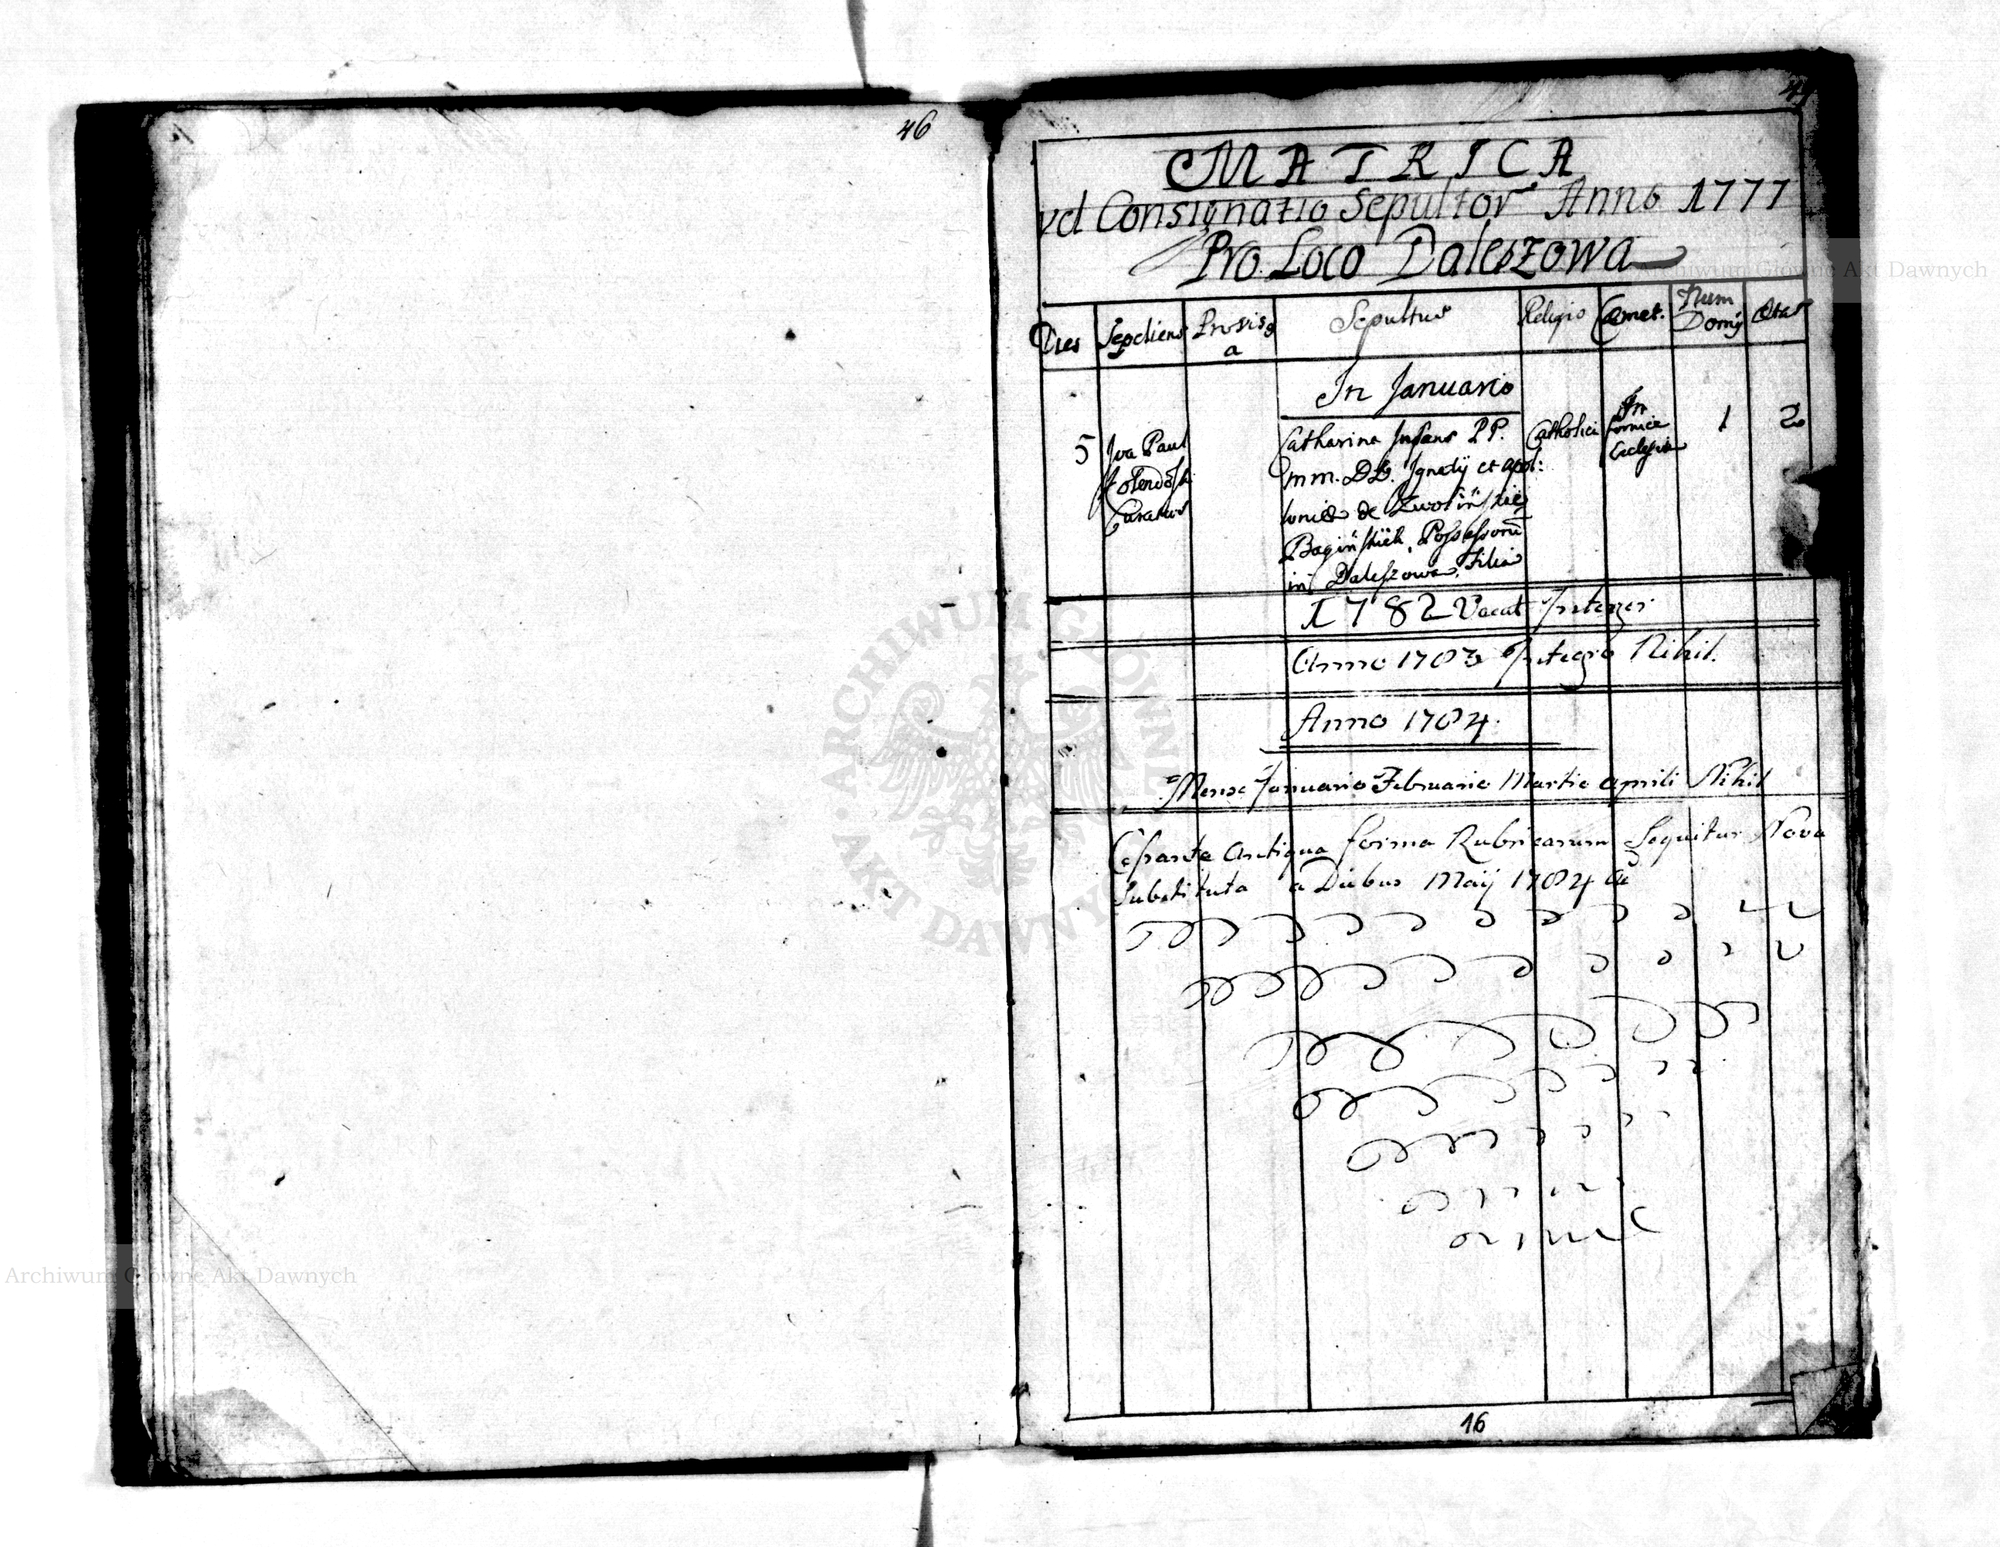 46
47
MATRICA
vel Consignatio Sepultor Anno 1777
Pro Loco Daleszowa
Dies Sepeliens Provisa Sepultus Religio Cæmet. Num Domỹ Ætas
In Januario
5
Iva Paul
Curatus
Catharina Infans PP.
mm. DD. Ignatij et Apol:
loniæ de
Bagińskich, Possessorū
in Daleszowa, Filia
Catholici
In
fornice
Ecclesiæ
1
2
1782 Vacat Integer
Anno 1783 Integro Nihil.
Anno 1784.
Mense Januario Februario Martio Aprili Nihil
Cessante Antiqua forma Rubricarum Sequitur Nova
Substituta a Diebus Maij 1784
16
ARCHIWUM GŁÓWNE AKT DAWNYCH
Archiwum Główne Akt Dawnych
Archiwum Główne Akt Dawnych